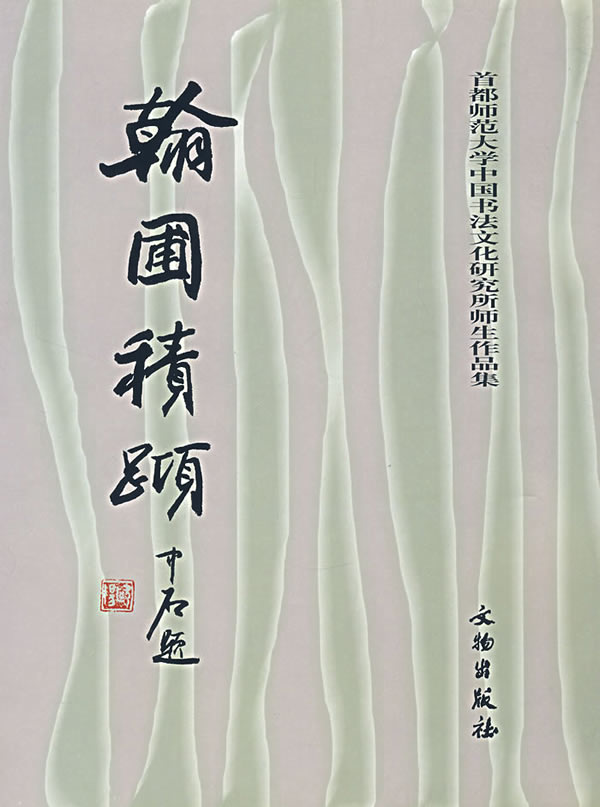 首都师范大学中国书法文化研究所师生作品集
翰圃積蹞
中石题
文物出版社